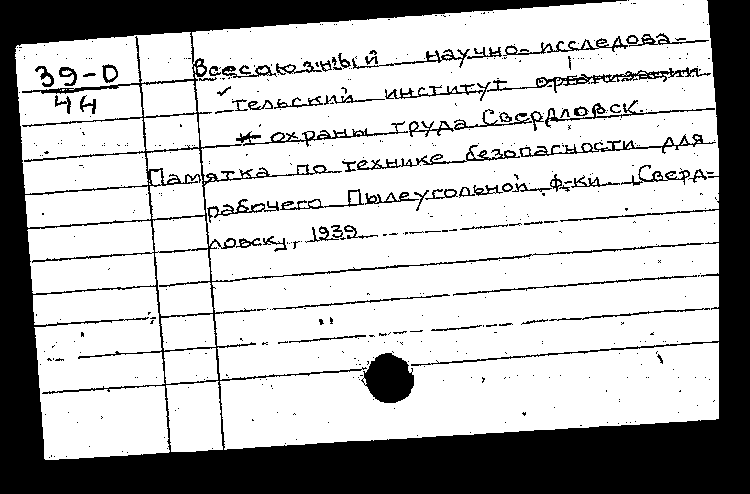 39-D
44
Всесоюзный научно-исследова-
тельский институт организации
и охраны труда Свердловск.
Памятка по технике безопасности для
рабочего Пылеугольной ф-ки [Сверд-
ловск], 1939